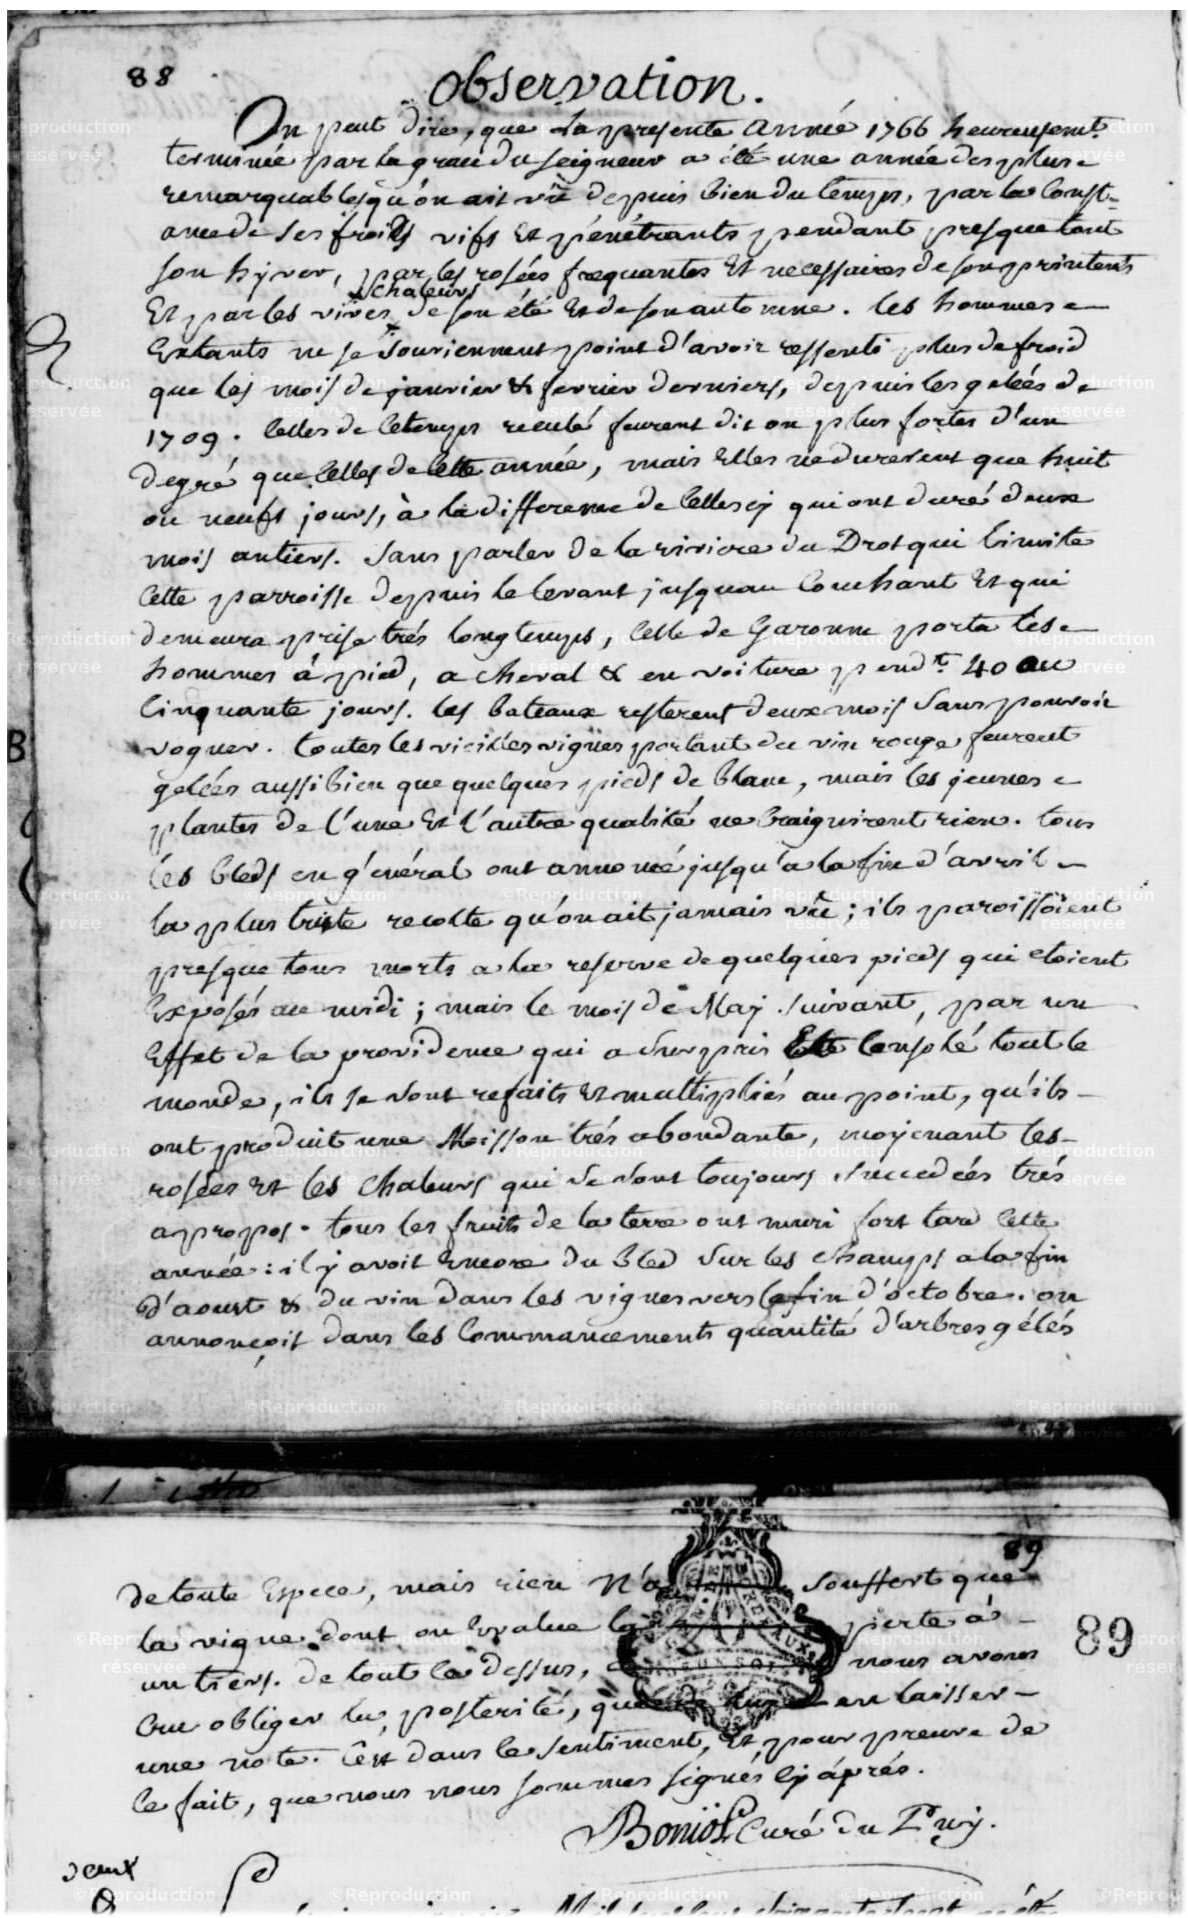 88
observation.
On peut dire, que la presente année 1766 heureusemt.
terminée par la grace du seigneur a été une année des plus
remarquables qu'on ait vûe depuis bien du temps, par la const-
ance de ses froids vifs Et pénétrants pendant presque tout
son hÿver, par les rosées frequantes Et necessaires de son printems
chaleurs
Et par les vives de son été Et de son automne. les hommes
Extants ne se souviennent point d'avoir ressenti plus de froid
que les mois de janvier & fevrier derniers, depuis les gelées de
1709. Celles de ce temps reculé feurent dit on plus fortes d'un
degré que celles de cette année, mais Elles ne durerent que huit
ou neufs jours, à la difference de celles cy qui ont duré deux
mois antiers. Sans parler de la riviere du Drot qui limite
cette parroisse depuis le levant jusquau Couchant Et qui
demeura prise trés longtemps, Celle de Garonne porta les
hommes à pied, a cheval & en voiture pendt. 40 ou
Cinquante jours. les bateaux resterent deux mois sans pouvoir
voguer. toutes les vieilles vignes portant du vin rouge feurent
gelées aussi bien que quelques pieds de blanc, mais les jeunes
plantes de l'une Et l'autre qualité ne Craignirent rien. tous
lés bleds en général ont annoncé jusqu'a la fin d'avril
la plus triste recolte qu'on ait jamais vûe; ils paroissoient
presque tous morts a la reserve de quelques pieds qui etoient
Exposés au midi; mais le mois de May suivant, par un
Effet de la providence qui a surpris Et Consolé tout le
monde, ils se sont refaits Et multipliés au point, qu'ils
ont produit une Moisson trés abondante, moyenant les
rosées Et les chaleurs qui se sont toujours succedées trés
apropos. tous les fruits de la terre ont muri fort tard Cette
année: il y avoit Encore du bled sur les champs a la fin
d'aoust & du vin dans les vignes vers la fin d'octobre. on
annonçoit dans les Commancements quantité d'arbres gélés
89
de toute Espece, mais rien n'a souffert que
la vigne dont on Evalue la perte à
un tiers. de tout la dessus, nous avons
Cru obliger la posterité, que en laisser
une note. C'est dans le sentiment, Et pour preuve de
Ce fait, que nous nous sommes signés cy áprés.
89
Boniol Curé du Puy.
deux